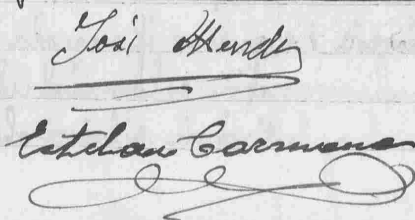 José Mendez
Esteban Carmona